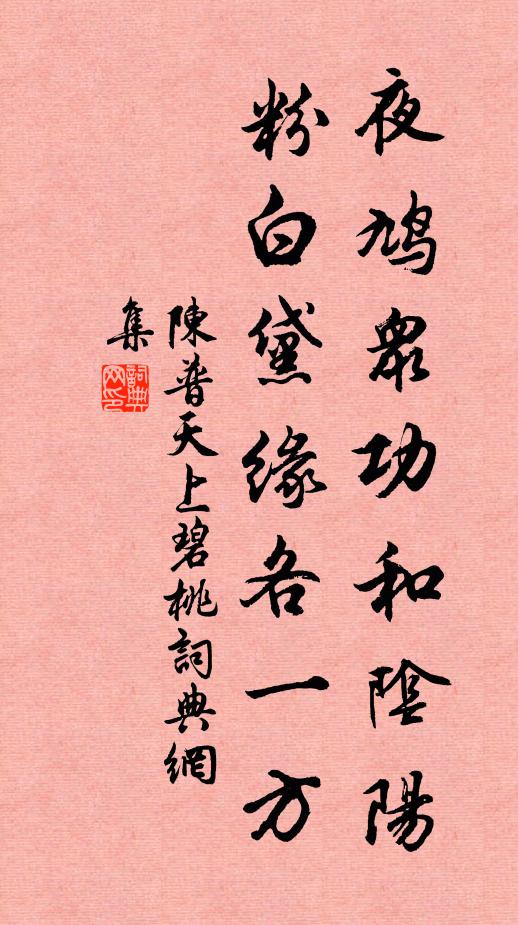 夜鳩眾功和陰陽
粉白黛緣各一方
陳普天上碧桃詞典網
集
詞典網印